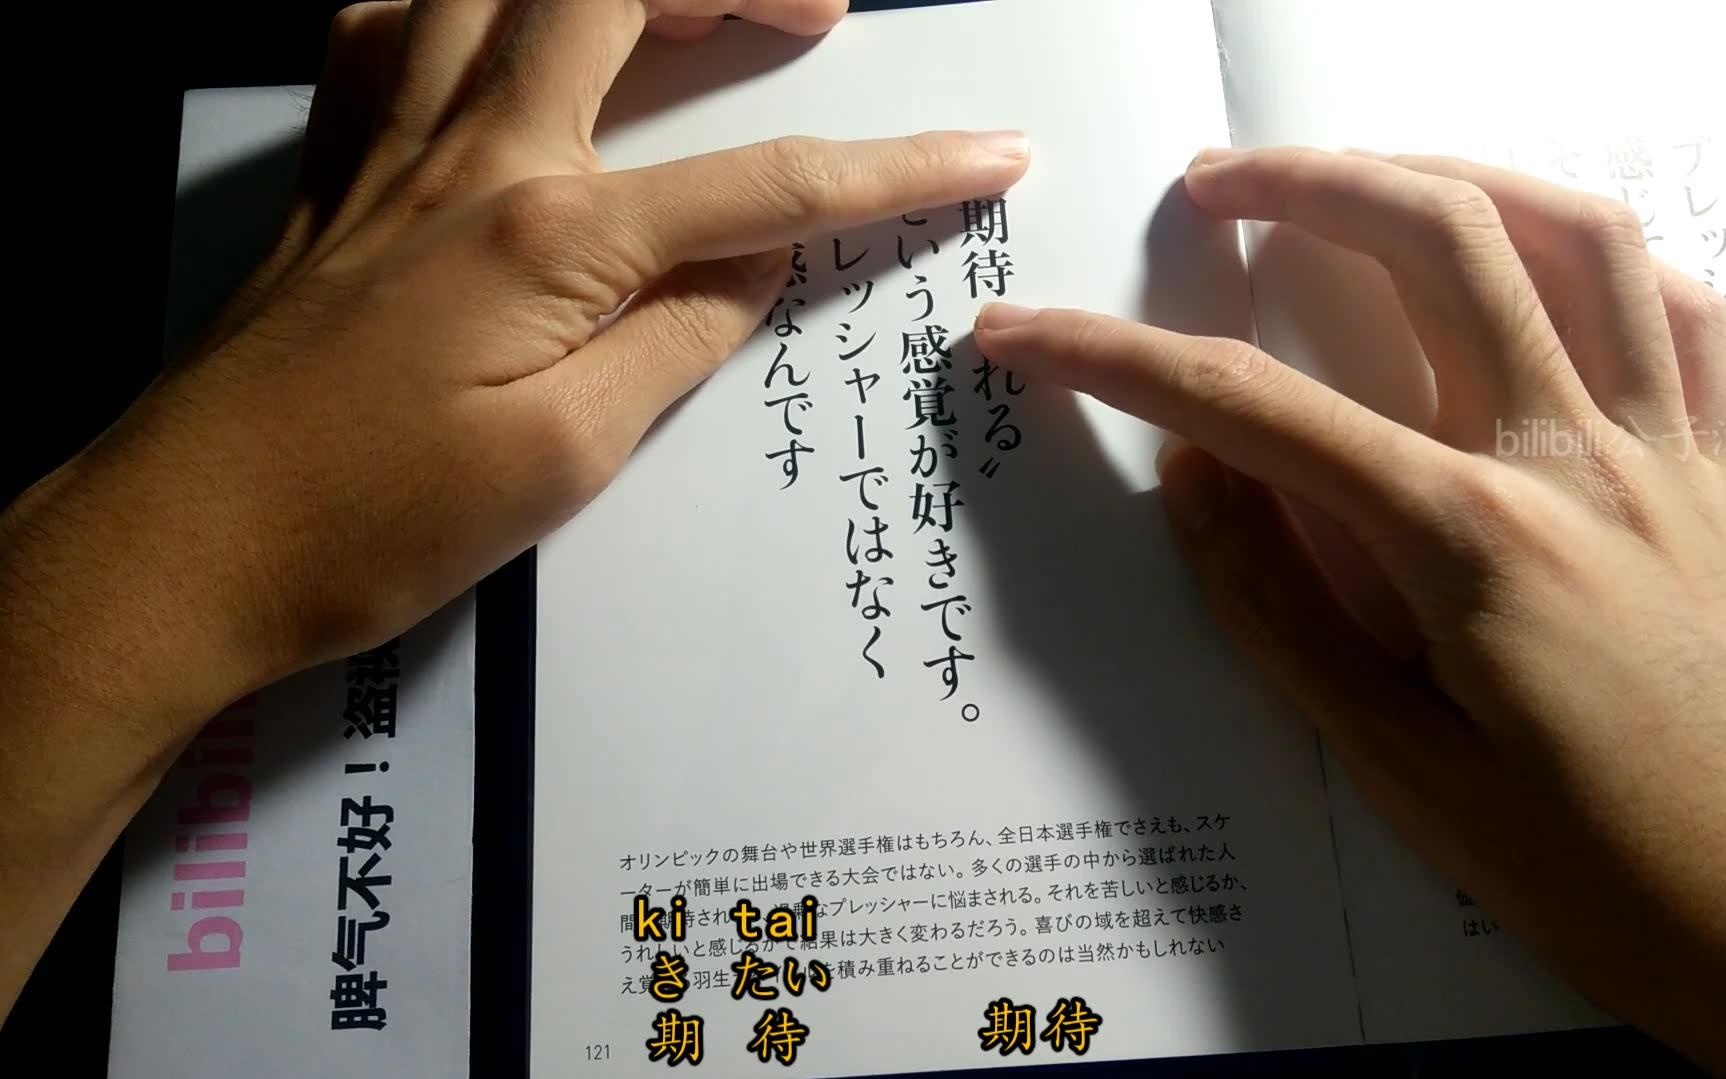 期待れる〟
いう感覚が好きです。
レッシャーではなく
感なんです
オリンピックの舞台や世界選手権はもちろん、全日本選手権でさえも、スケ
ーターが簡単に出場できる大会ではない。多くの選手の中から選ばれた人
間 期待され なプレッシャーに悩まされる。それを苦しいと感じるか、
うれしいと感じるかで結果は大きく変わるだろう。喜びの域を超えて快感さ
え覚 羽生 を積み重ねることができるのは当然かもしれない
121
プレッシ
感じて
そ
はい
bilibili
脾气不好！盗
bilibili公子
ki tai
きたい
期待
期待